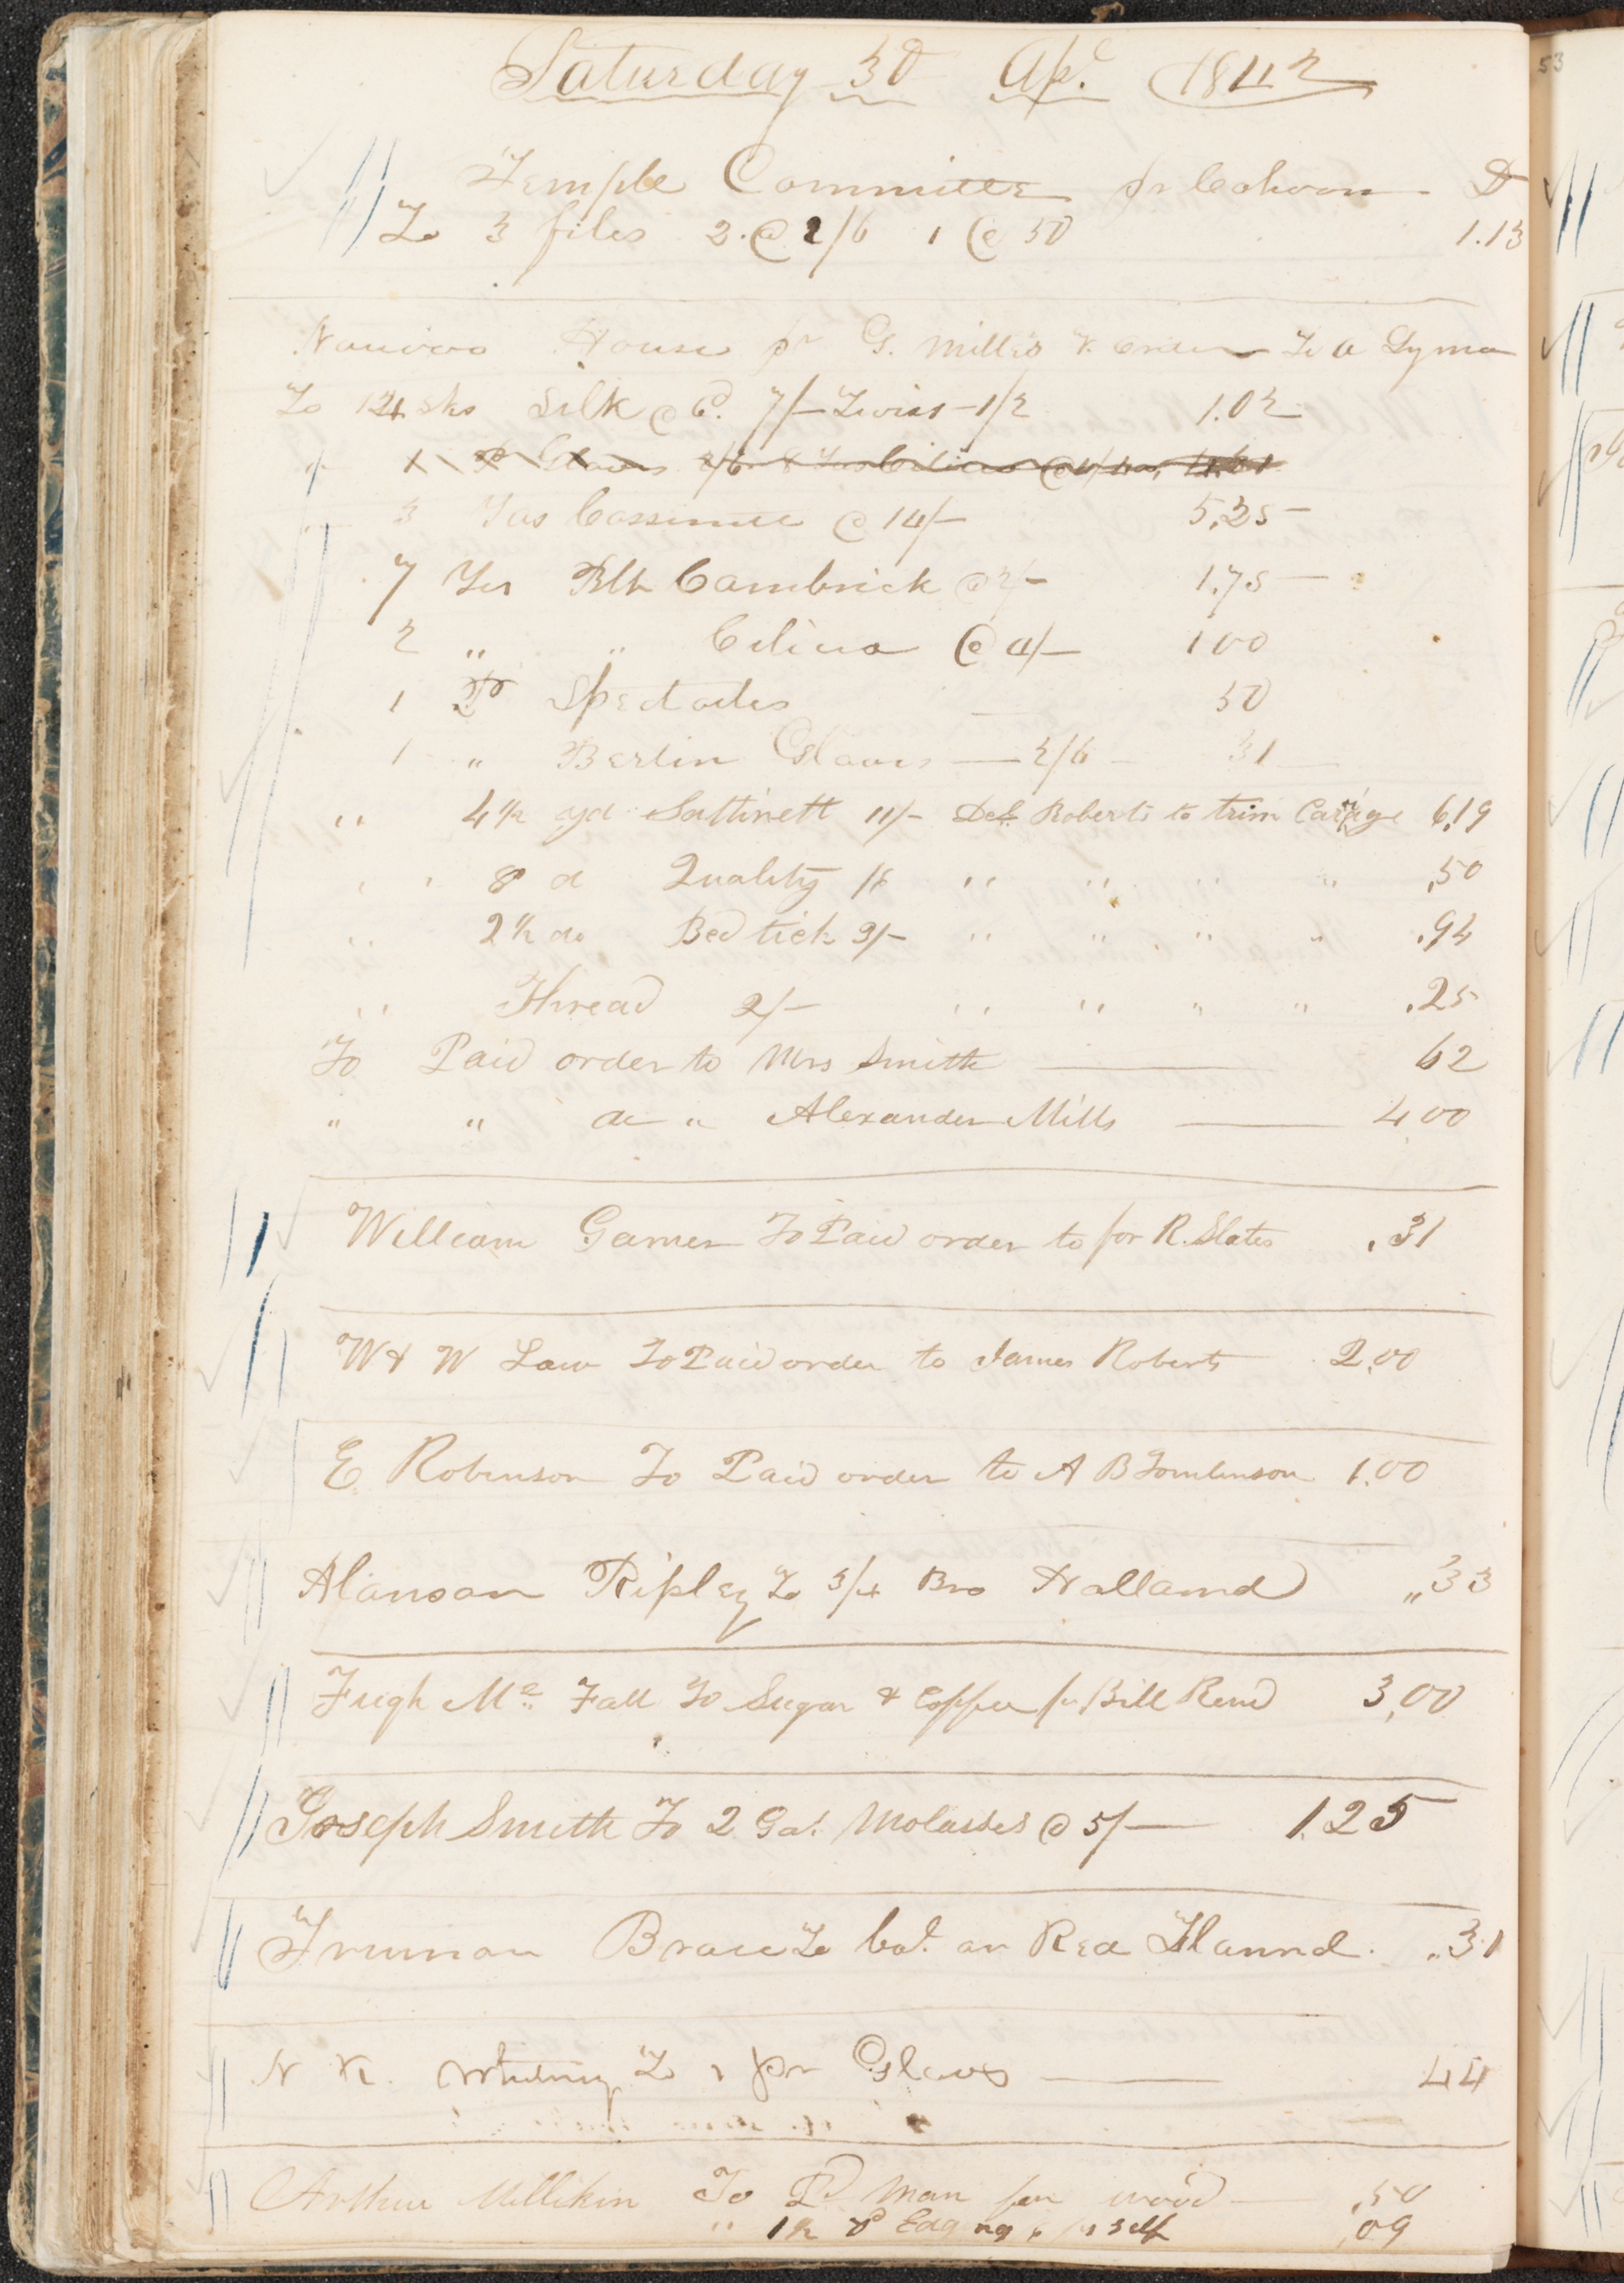 Saturday 30 Apl 1842
Temple Committee pr Cahoon Dr
To 3 files 2 @ 2/6 1 @ 50 1.13
Nauvoo House pr G. Mills To A Lyman
To 12 sks Silk @ 6. 7/– Twist – 1/2 1.02
1 Pr Gloves 2/6
3 Yds Cassimere @ 14/– 5.25
7 Yds Blk Cambrick @ 2/– 1.75
2 " " Cilicia @ 4/– 100
1 Pr Spectacles 50
1 " Berlin Gloves — 2/6 – 31
" 4½ yd Sattinett 11/– Del Roberts to trim Carriage 6.19
" " 8 d Quality /6 " " " " ,50
" 2½ do Bed tick 3/– " " " " .94
" Thread 2/– " " " " .25
To Paid order to Mrs Smith 62
" " do " Alexander Mills 4.00
William Garner To Paid order to for R. Slates .31
W & W Law To Paid order to James Roberts 2.00
E Robinson To Paid order to A B Tomlinson 1.00
Alanson Ripley To 3/4 Bro Holland ,,33
Hugh Mc Fall To Sugar & Coffee pr Bill Rend 3,00
Joseph Smith To 2 Gal. Molasses @ 5/— 1.25
Truman Brace To bal. on Red Flannel .31
N K. Whitney To 1 pr Gloves 44
Arthur Millikin To Pd man for wood ,50
" 1½ Edging pr self ,09
53